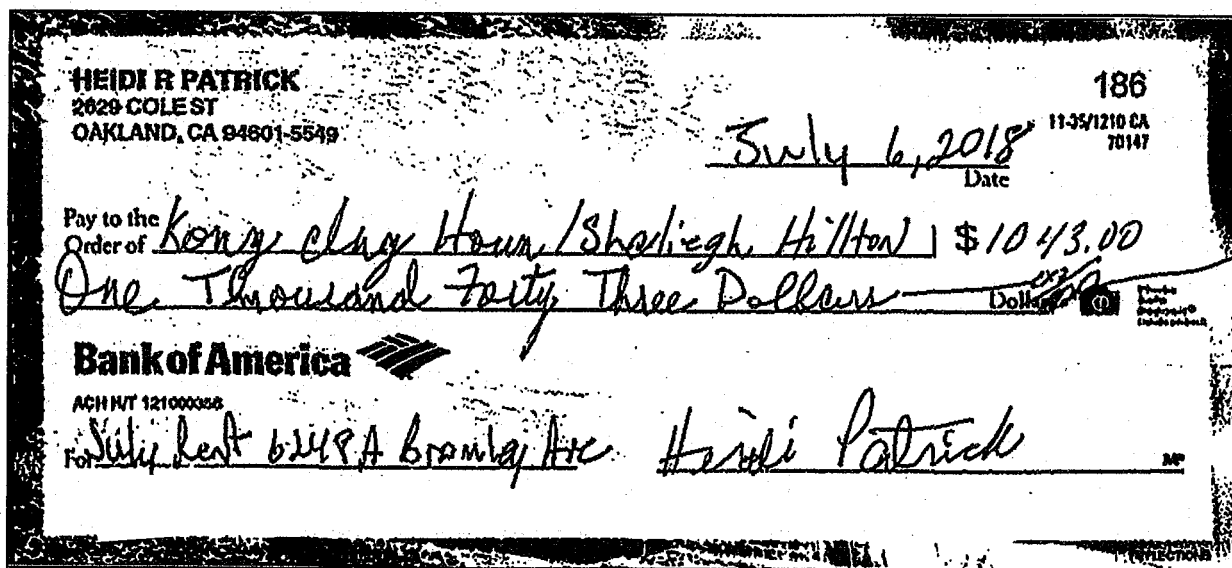 HEIDI R PATRICK
2629 COLE ST
OAKLAND, CA 94601-5549
186
11-35/1210 CA
70147
July 6, 2018
Date
Pay to the
Order of Kong Houn / Shaliegh Hillton $ 1043.00
One Thousand Forty Three Dollars Dollars
Bank of America
ACH R/T 121000358
For July Rent 6248 A Bromley Ave Heidi Patrick
MP